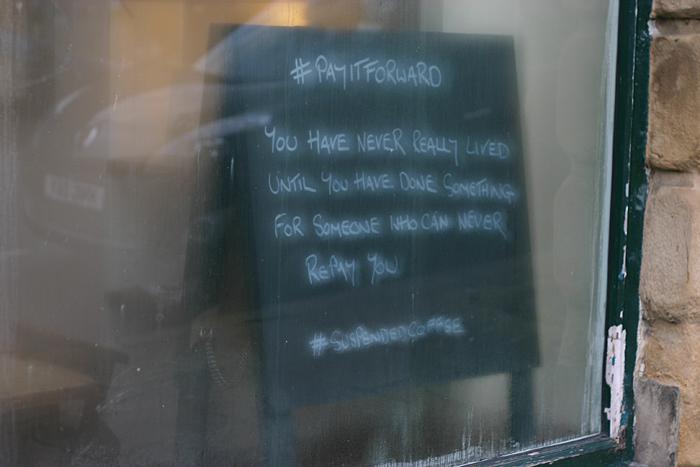 #PAYITFORWARD
YOU HAVE NEVER REALLY LIVED
UNTIL YOU HAVE DONE SOMETHING
FOR SOMEONE WHO CAN NEVER
REPAY YOU
#SUSPENDEDCOFFEE